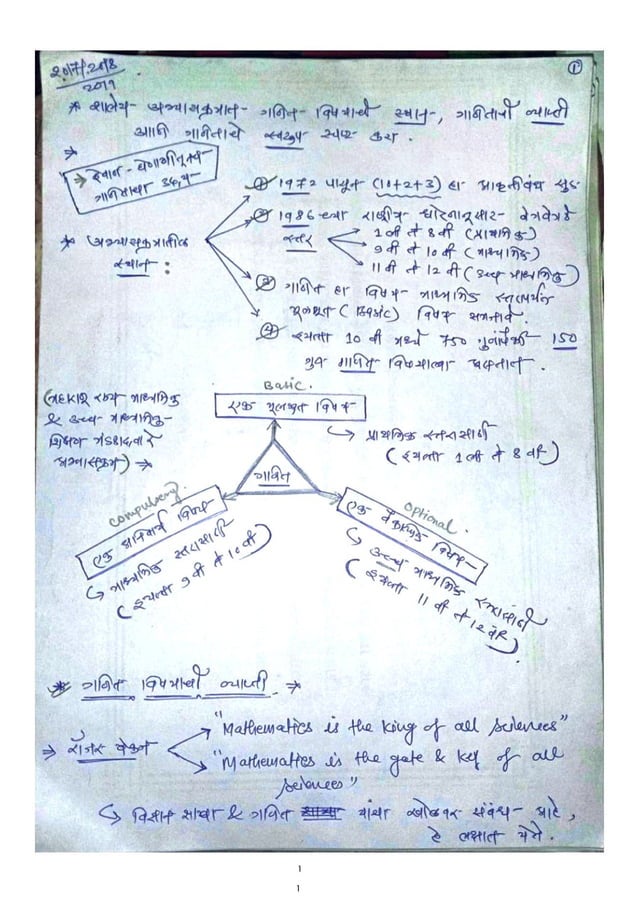 2017, 2018
2019
1
* शालेय अभ्यासक्रमात गणित विषयाचे स्थान, गणिताची व्याप्ती
आणि गणिताचे स्वरूप स्पष्ट करा.
→
→ स्थान - श्रेणीनुरूप
गणिताचा उद्देश
* अभ्यासक्रमातील
स्थान :
① 1972 पासून (10+2+3) हा आकृतीबंध सुरू
② 1986 च्या राष्ट्रीय धोरणानुसार वेगवेगळे
स्तर
1 ली ते 8 वी (प्राथमिक)
9 वी ते 10 वी (माध्यमिक)
11 वी ते 12 वी (उच्च माध्यमिक)
③ गणित हा विषय माध्यमिक स्तरापर्यंत
मूलभूत विषय समजावे.
④ इयत्ता 10 वी मध्ये 750 गुणांपैकी 150
गुण गणित विषयाला असतात.
(महाराष्ट्र राज्य माध्यमिक
& उच्च माध्यमिक
शिक्षण मंडळाद्वारे
अभ्यासक्रम) →
Basic.
एक मूलभूत विषय
↳ प्राथमिक स्तरासाठी
(इयत्ता 1 ली ते 8 वी)
गणित
Compulsory
एक अनिवार्य विषय
↳ माध्यमिक स्तरासाठी
(इयत्ता 9 वी ते 10 वी)
Optional.
एक वैकल्पिक विषय
↳ उच्च माध्यमिक स्तरासाठी
(इयत्ता 11 वी ते 12 वी)
* गणित विषयाची व्याप्ती. →
→ रॉजर बेकन
"Mathematics is the king of all sciences"
"Mathematics is the gate & key of all
sciences"
↳ विज्ञान शाखा & गणित यांचा खोलवर संबंध आहे,
हे लक्षात येते.
1
1